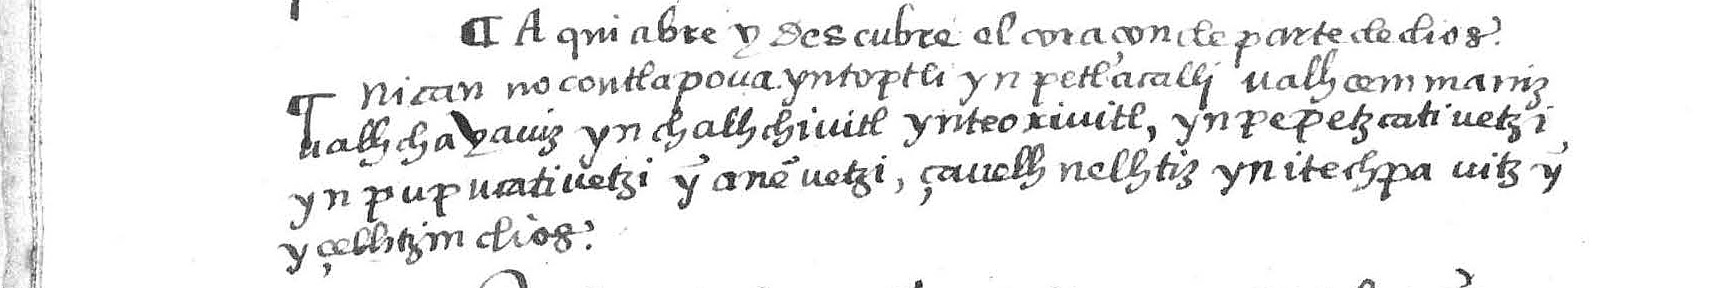 ¶ A qui abre y descubre el coraçon de parte de dios.
¶ Nican nocontlapoua. yntoptli yn petlacalli ualh cemmaniz
ualhchayauiz yn chalhchiuitl ynteoxiuitl, yn pepetzcatiuetzi,
yn pupucatiuetzi ỹ anẽuetzi, çauelh nelhtiz yn itechpa uitz ỹ
yçelhtzin dios.